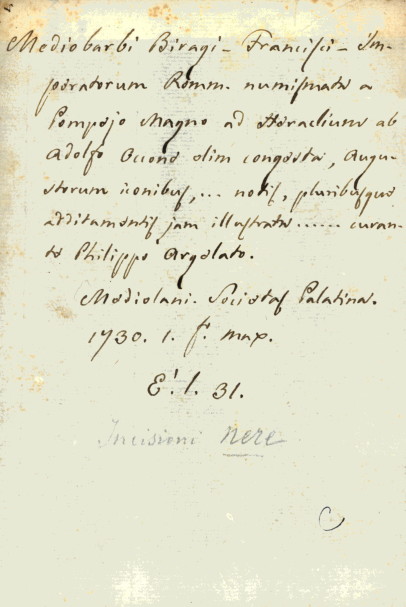 Mediobarbi Biragi - Francisci - Im-
peratorum Romm. numismata a
Pompejo Magno ad Heraclium ab
Adolfo Occone olim congesta, Augu-
storum iconibus, ... notis, pluribusque
additamentis jam illustrata ...... curan-
te Philippo Argelato.
Mediolani. Societas Palatina.
1730. 1. f. max.
E'. l. 31.
Incisioni nere